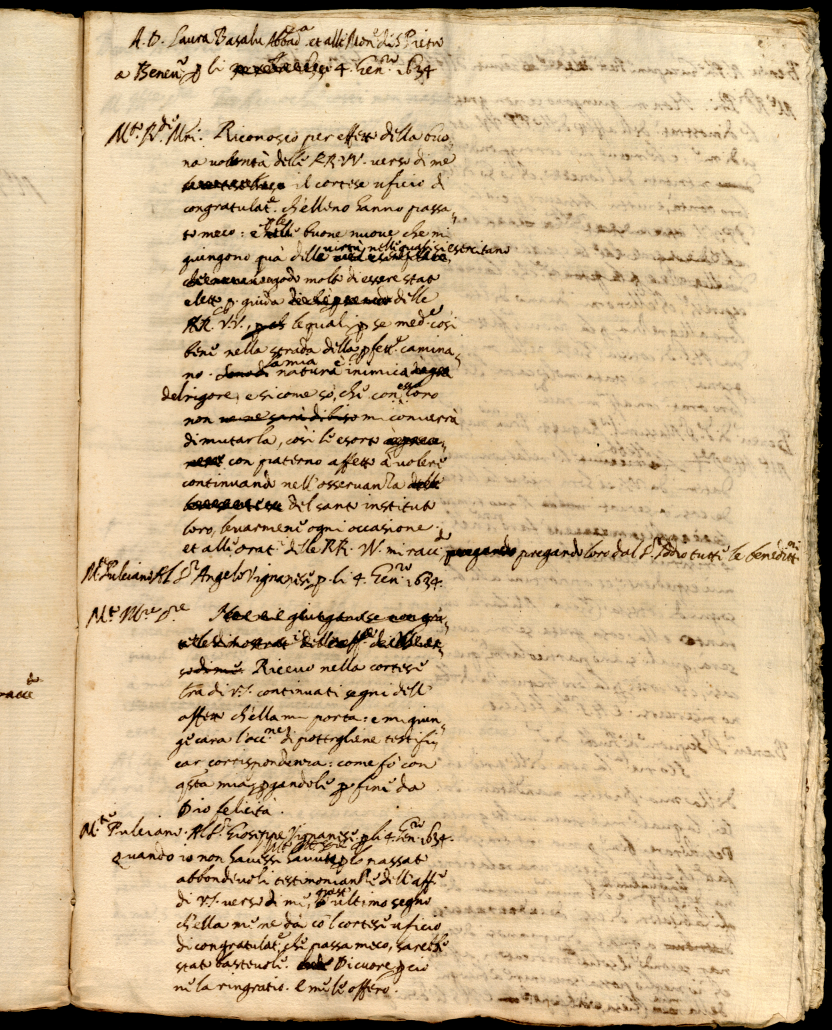 A. D. Laura Basalu Abbad.ª et alle Mon.e di S. Pietro
a Beneu.o p li 4. Gen.ro 1634
M.to R.de M.ri. Riconosco per effetto della buo,
na volontà delle RR. VV. verso di me
il cortese uficio di
congratulat.e ch'elleno hanno passa,
to meco: e p le buone nuove che mi
giungono già delle virtù nelle quali si esercitano
godo molto di essere stato
eletto p guida delle
RR. VV., le quali p se med.e così
bene nella strada della pfett.e camina,
no. la mia natura è inimica
del rigore, e si come so, che con esso loro
non mi converrà
di mutarla, così le esorto
con paterno affetto à volere
continuando nell'osservanza
del santo instituto
loro, levarmene ogni occasione.
et all'orat.i delle RR. VV. mi racc.do pregando loro dal S.r Iddio tutte le benedittni
M.te Pulciano Al S.r Angelo Vignanesi p li 4. Gen.ro 1634.
M.to M.co S.re
Ricevo nella cortese
l'ra di V.S. continuati segni dell'
affetto ch'ella mi porta: e mi giun,
ge cara l'occ.ne di pottergliene testifi,
car corrispondenza: come fò con
q'sta mia, pgandole p fine da
Dio felicità.
M.te Pulciano. Al S.r Gioseppe Vignanesi p li 4. Gen.ro 1634.
Quando io non havessi havuto p lo passato
abbondevoli testimonianze dell'aff.o
di V.S. verso di me, quest'ultimo segno
ch'ella me ne dà co'l cortese uficio
di congratulat.e che passa meco, sarebbe
stato bastevole. Di cuore p ciò
ne la ringratio. e me le offero.